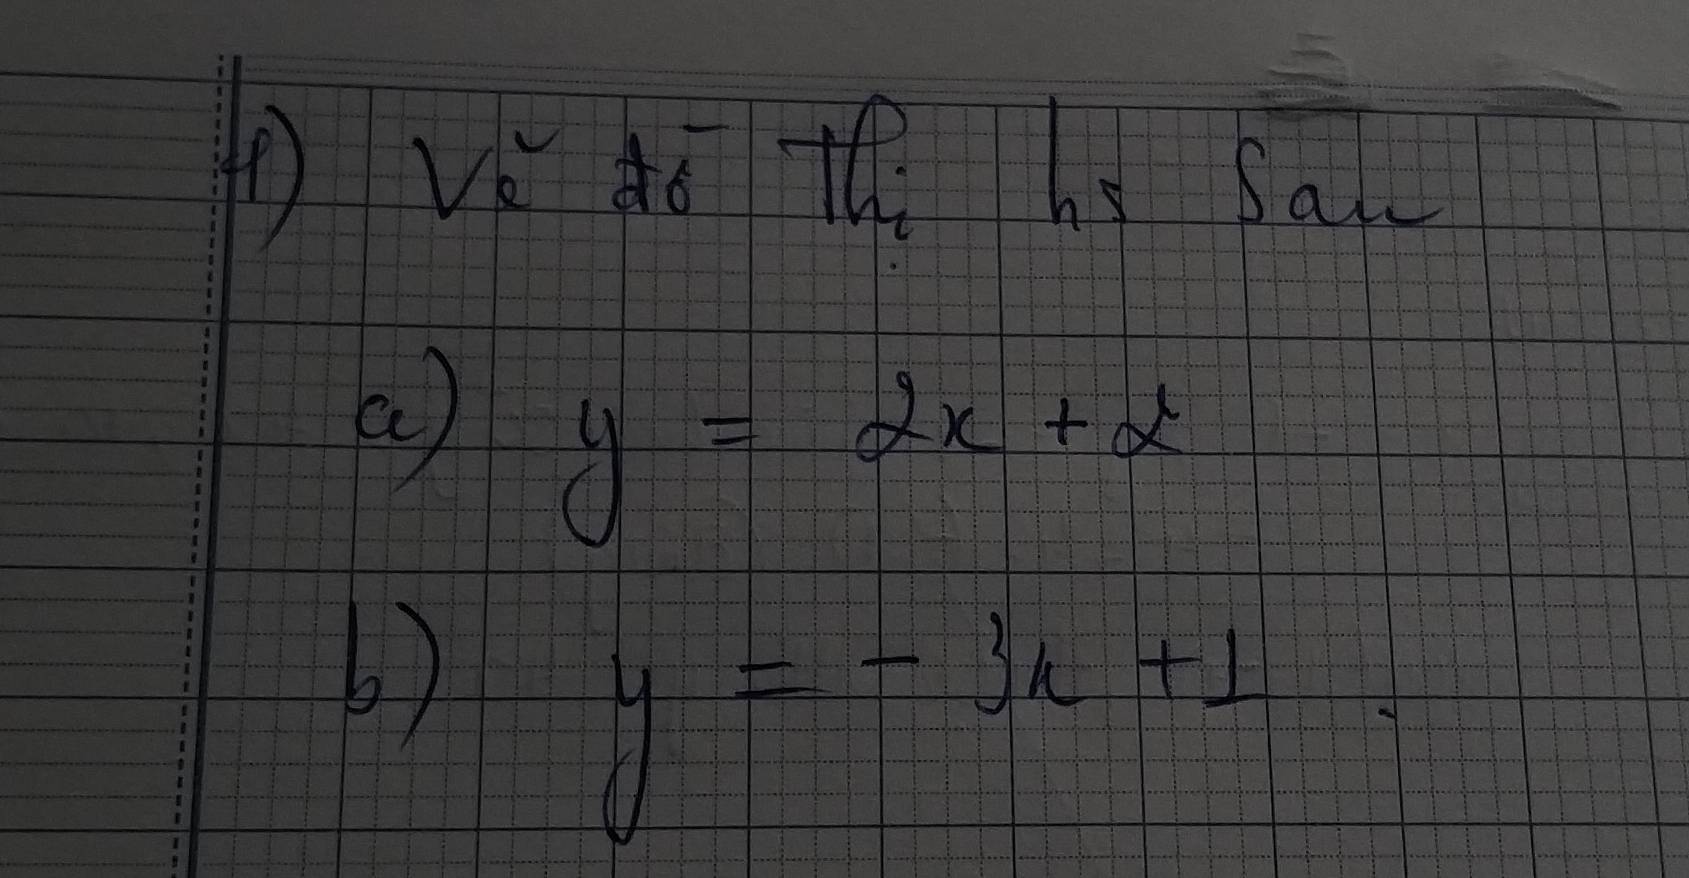 1) Vẽ đồ thị hs sau
a) y = 2x + 2
b) y = - 3x + 1.